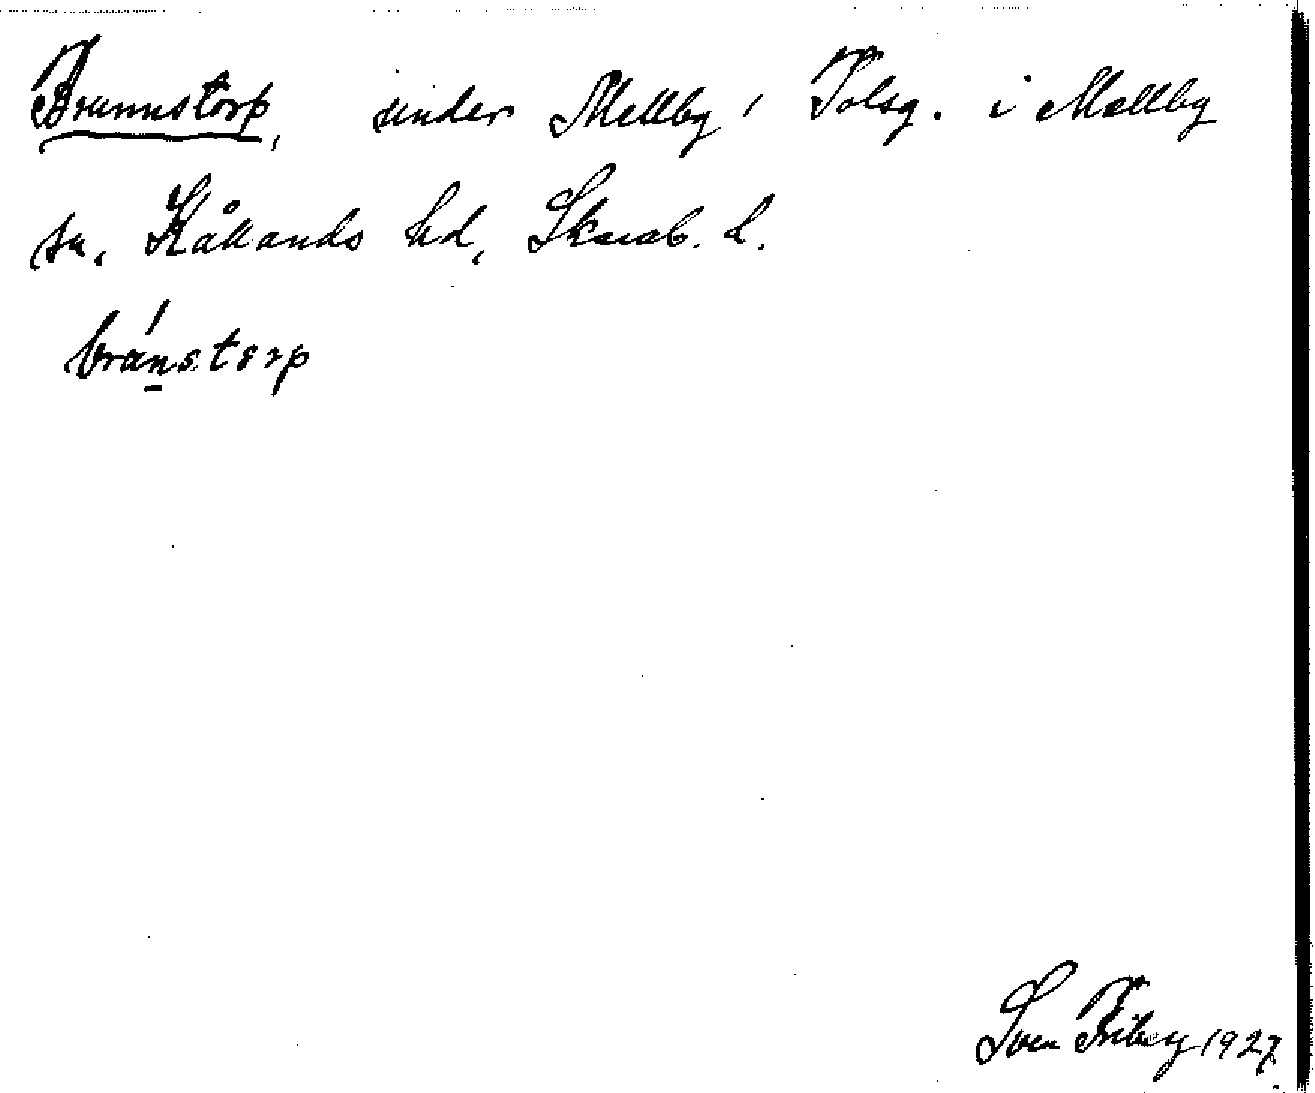 Brunnstorp, under Mellby, Tolsg. i Mellby
sn, Kållands hd, Skarab. l.
bránstorp
Sven Friberg 1927.